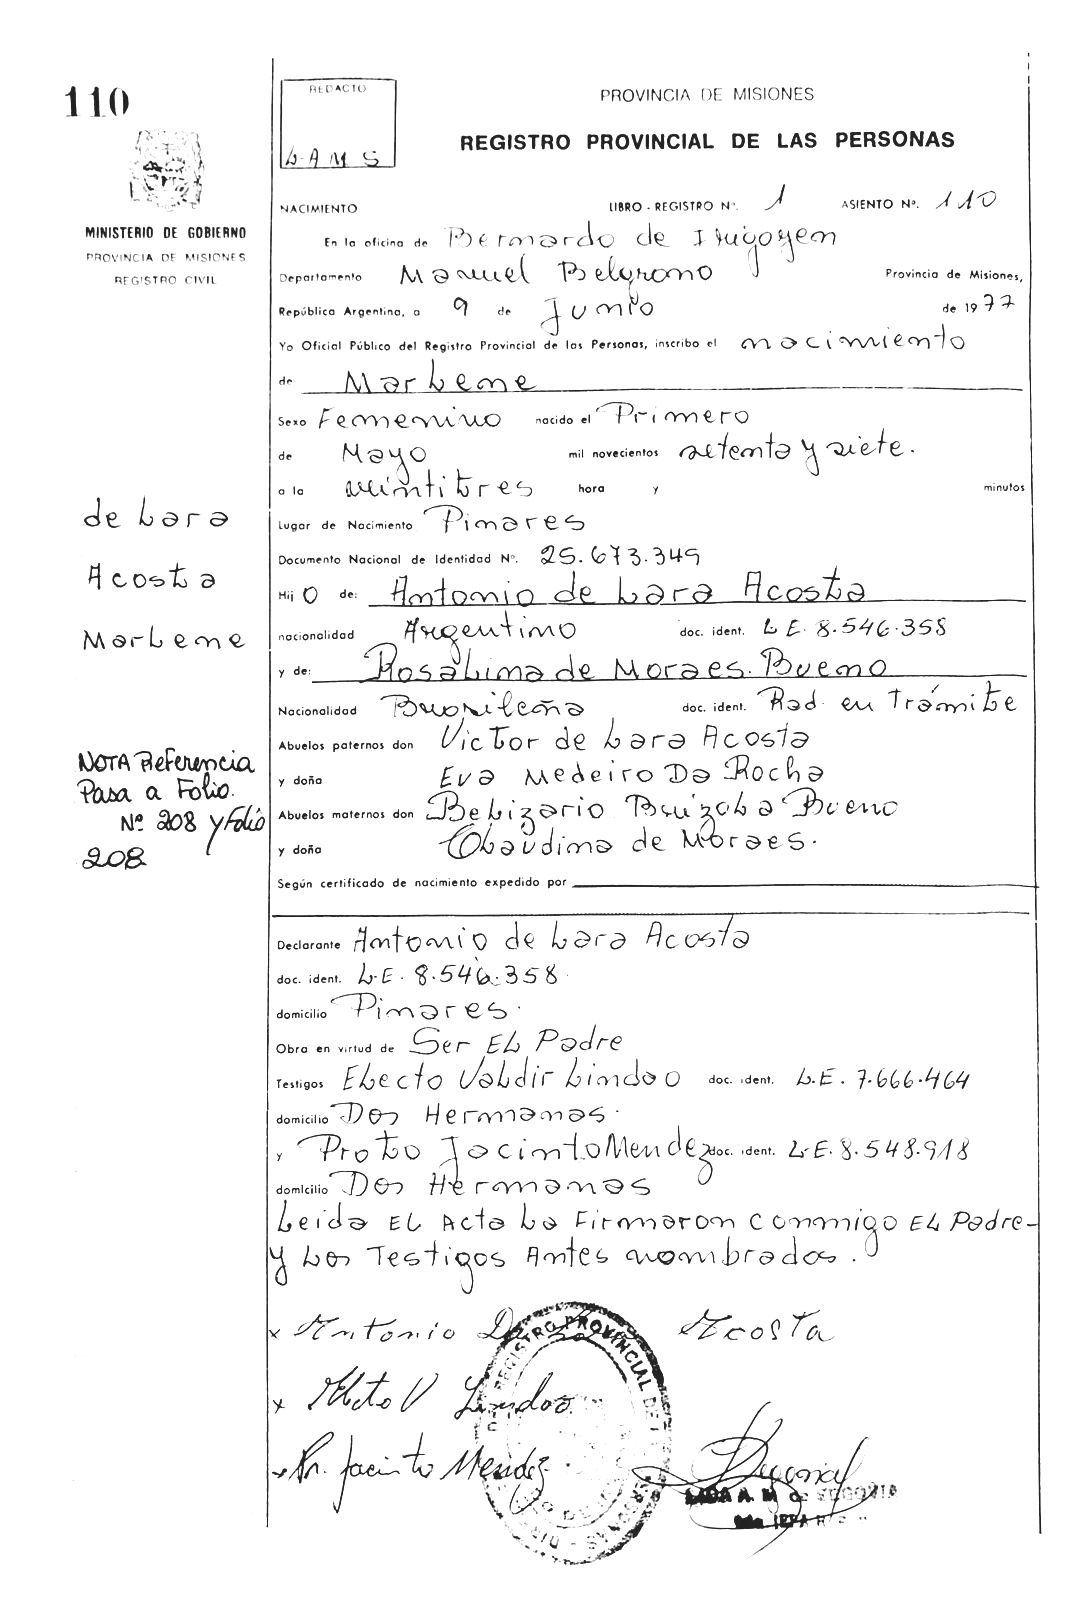 110
REDACTO
L. A M S
PROVINCIA DE MISIONES
REGISTRO PROVINCIAL DE LAS PERSONAS
MINISTERIO DE GOBIERNO
PROVINCIA DE MISIONES
REGISTRO CIVIL
NACIMIENTO LIBRO - REGISTRO Nº. 1 ASIENTO Nº. 110
En la oficina de Bernardo de Irigoyen
Departamento Manuel Belgrano Provincia de Misiones,
República Argentina, a 9 de Junio de 1977
Yo Oficial Público del Registro Provincial de las Personas, inscribo el nacimiento
de Marlene
Sexo Femenino nacido el Primero
de Mayo mil novecientos setenta y siete.
a la veintitres hora y minutos
Lugar de Nacimiento Pinares
Documento Nacional de Identidad Nº. 25.673.349
Hij O de: Antonio de Lara Acosta
nacionalidad Argentino doc. ident. L E. 8.546.358
y de: Rosalina de Moraes. Bueno
Nacionalidad Brasileña doc. ident. Rad. en Trámite
Abuelos paternos don Victor de Lara Acosta
y doña Eva Medeiro Da Rocha
Abuelos maternos don Belizario Bueno
y doña Claudina de Moraes.
Según certificado de nacimiento expedido por
de Lara
Acosta
Marlene
NOTA Referencia
Pasa a Folio.
Nº 208 y Folio
208
Declarante Antonio de Lara Acosta
doc. ident. L.E. 8.546.358
domicilio Pinares.
Obra en virtud de Ser El Padre
Testigos Electo Valdir Lindao doc. ident. L.E. 7.666.464
domicilio Dos Hermanas.
y Proto Jacinto Mendez doc. ident. L.E. 8.548.918
domicilio Dos Hermanas
Leida El Acta La Firmaron conmigo El Padre-
y Los Testigos Antes nombrados.
x Antonio De Acosta
x Elcto V Lindao
x Pr. Jacinto Mendez
REGISTRO PROVINCIAL DE
A. M. de SEGOVIA